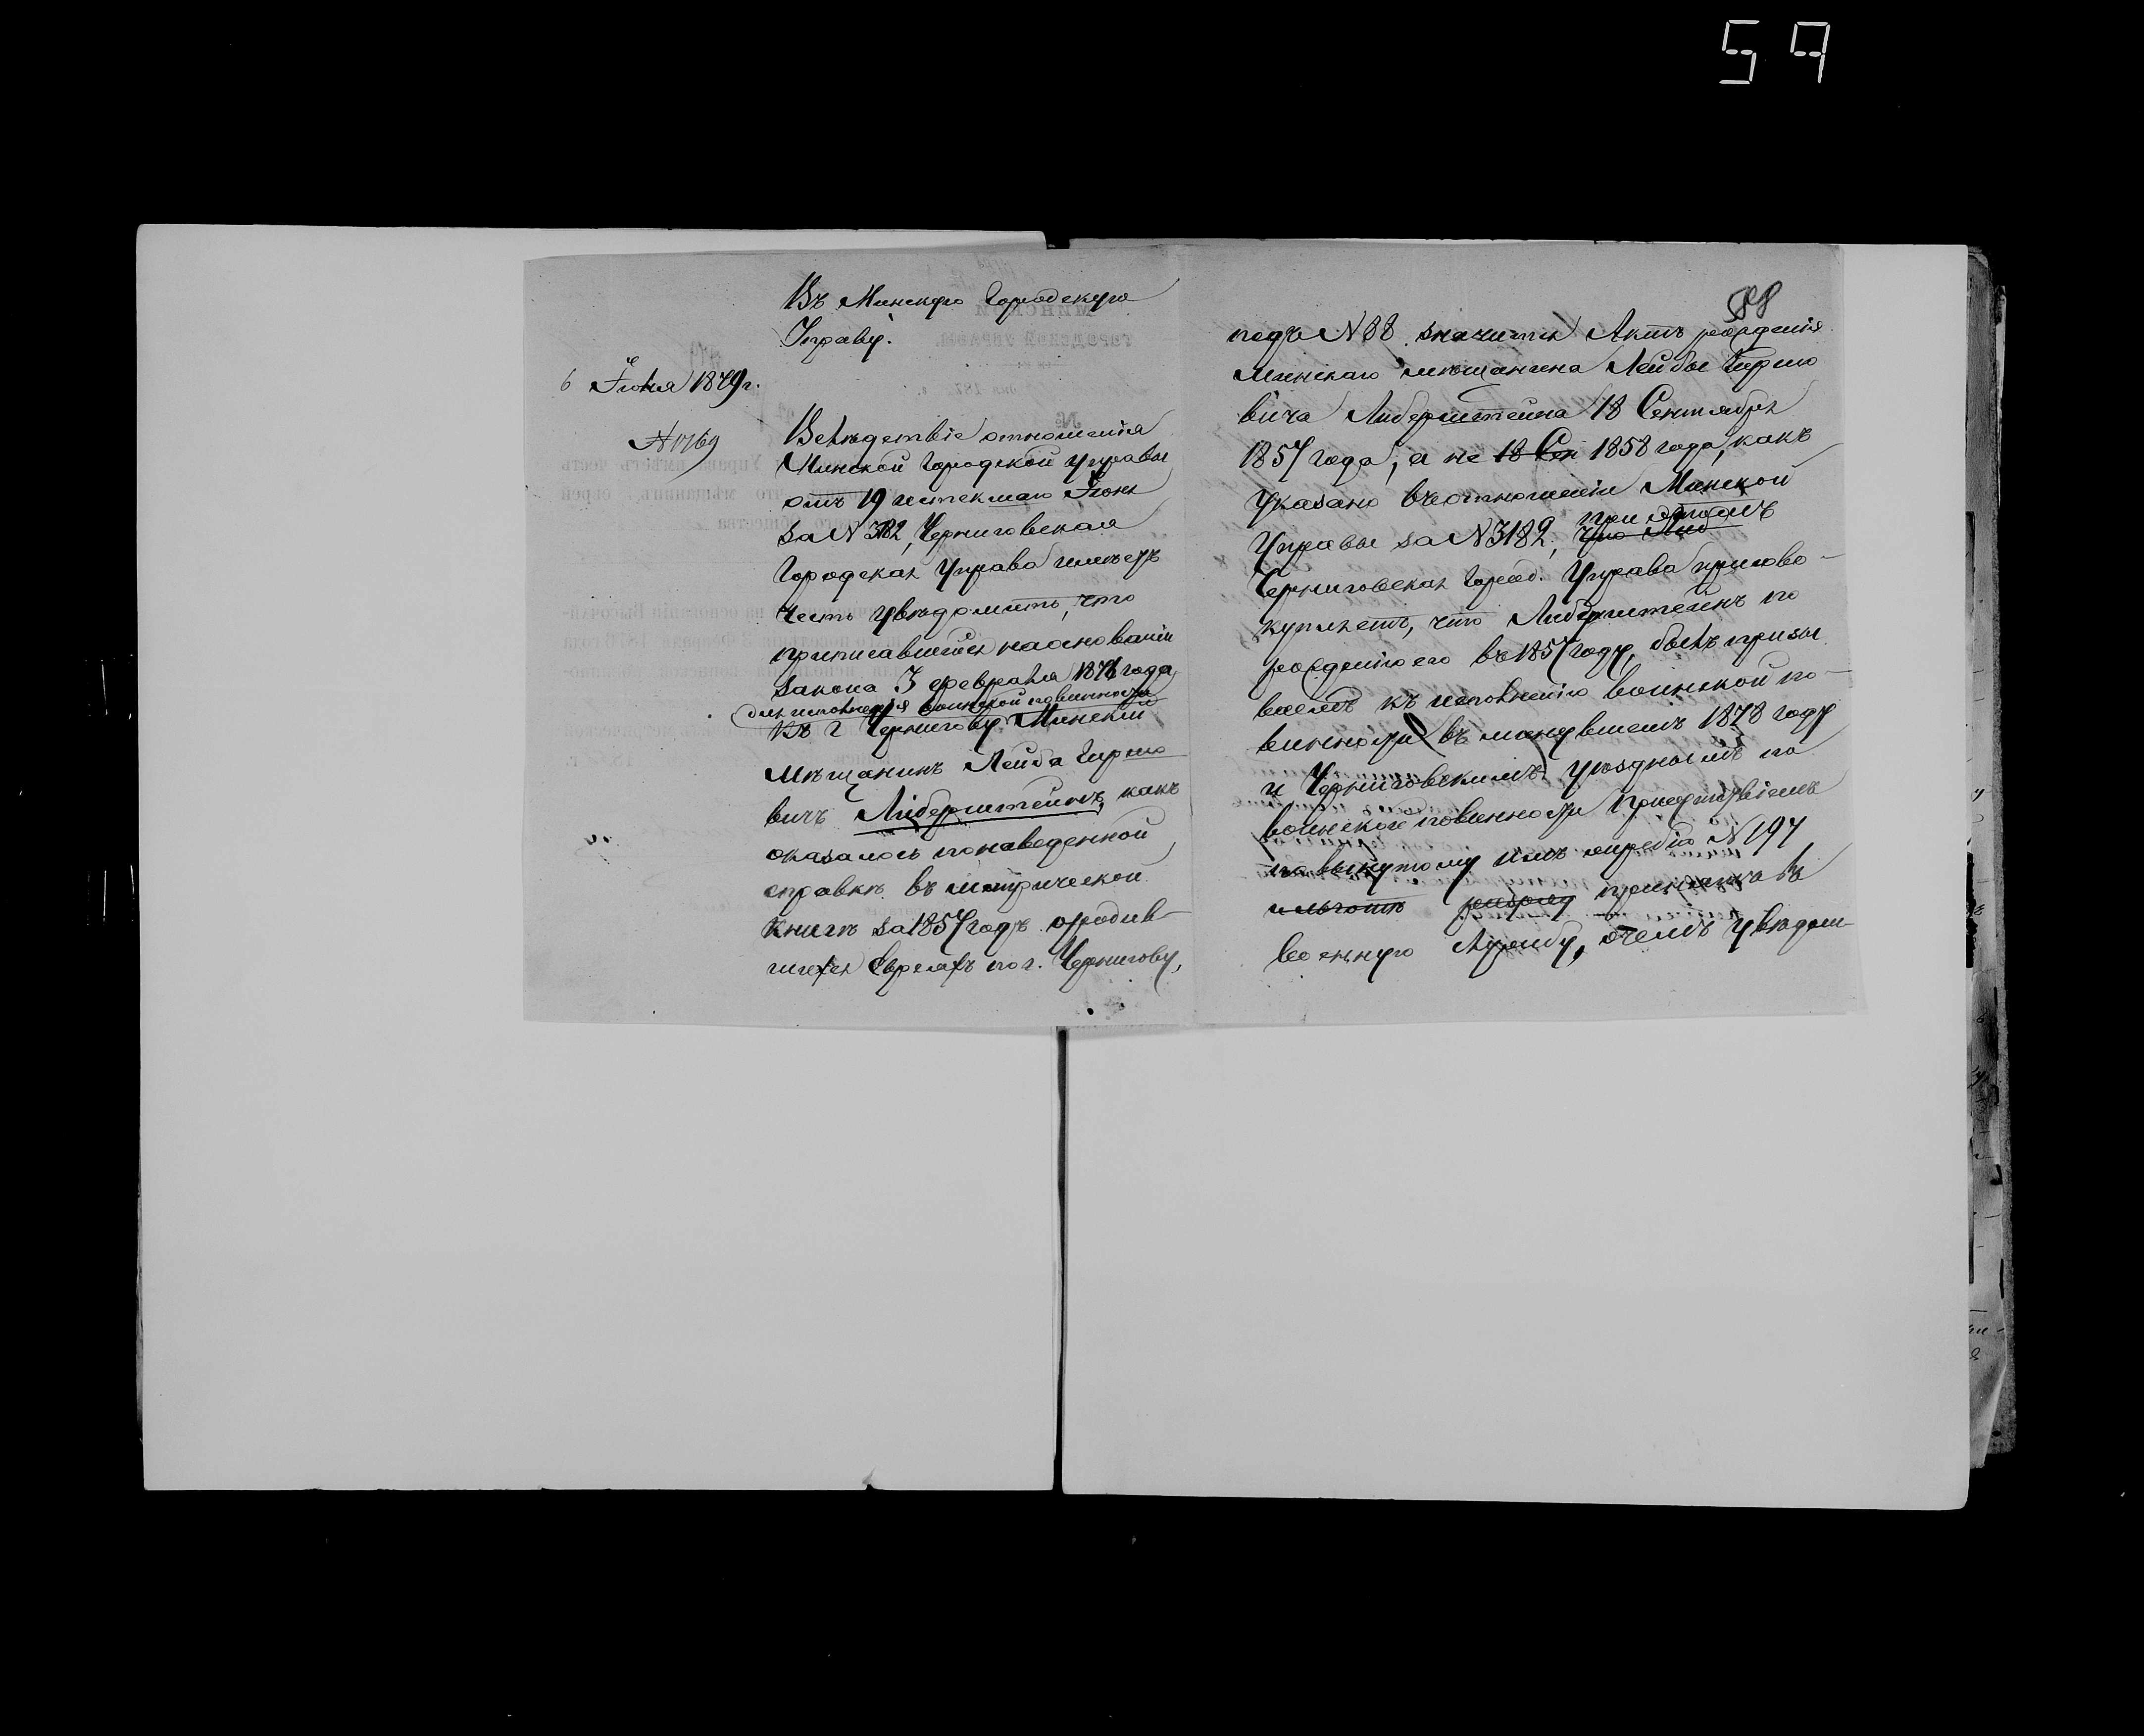 59
Въ Минскую Городскую
Управу.
6 Іюля 1879 г.
№ 1769
Вслѣдствіе отношенія
Минской Городской Управы
отъ 19 истекшаго Іюня
за № 3182, Черниговская
Городская Управа имѣетъ
честь увѣдомить, что
приписавшійся на основаніи
закона 3 февраля 1876 года
для исполненія воинской повинности
къ г. Чернигову Минскій
мѣщанинъ Лейба Гиршо
вичъ Либерштейнъ, какъ
оказалось по наведенной
справкѣ въ метрической
книгѣ за 1857 годъ о родив-
шихся Евреяхъ по г. Чернигову,
588
подъ № 88 значится Актъ рожденія
Минскаго мѣщанина Лейбы Гиршо
вича Либерштейна 18 Сентября
1857 года, а не 18 Сен 1858 года, какъ
указано въ отношеніи Минской
при этомъ
Управы за № 3182, что Либ
Черниговская Город. Управа присово-
купляетъ, что Либерштейнъ по
рожденію его въ 1857 году, былъ призы
ваемъ къ исполненію воинской по-
винности въ минувшемъ 1878 году
и Черниговскимъ уѣзднымъ по
воинской повинности Присутствіемъ
по вынутому имъ жребію № 197
и льготѣ принятъ въ
военную службу, о чемъ увѣдом-